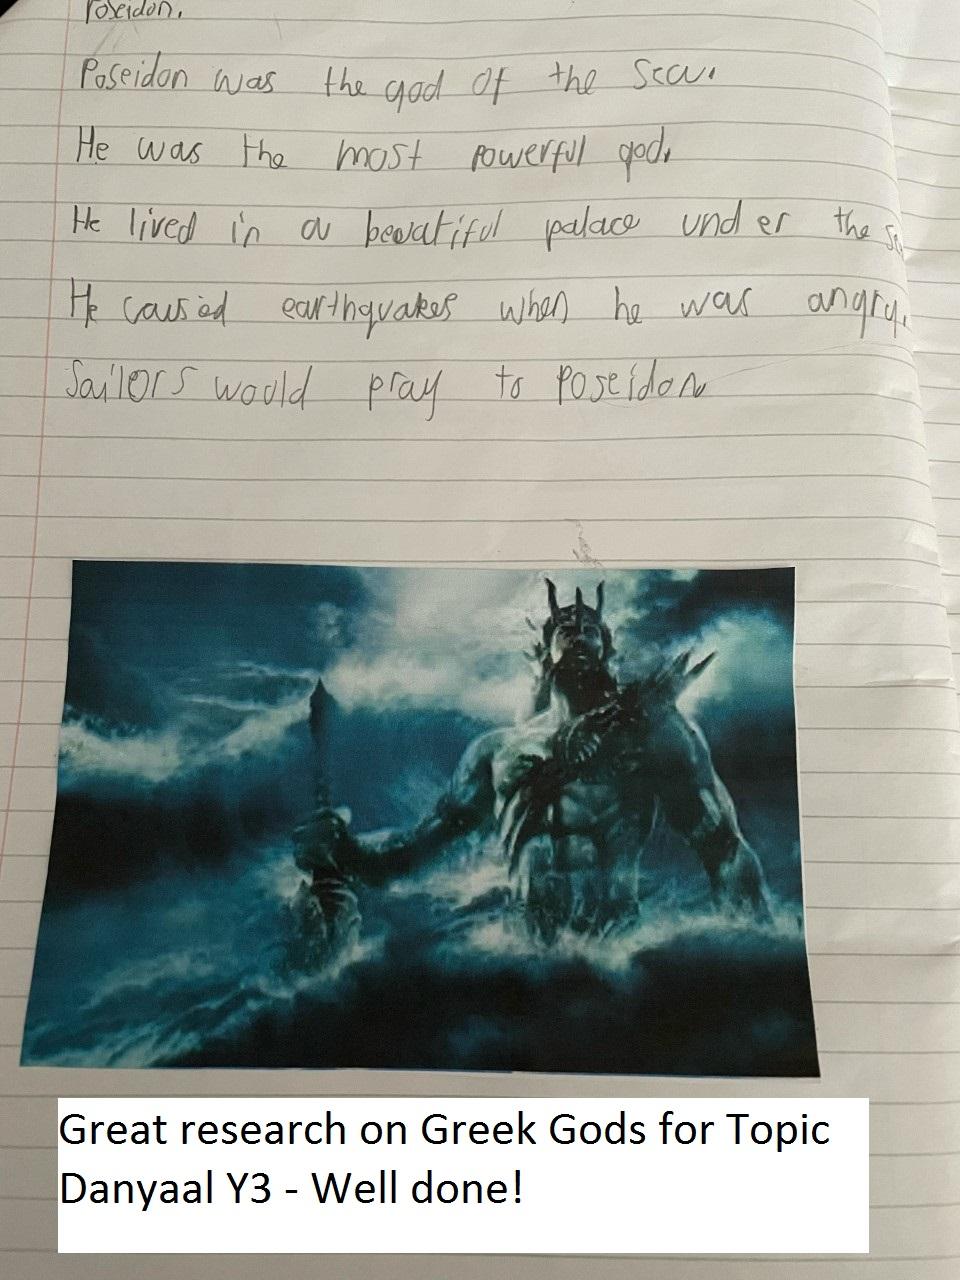 Poseidon.
Poseidon was the god of the sea.
He was the most powerful god.
He lived in a beautiful palace under the
He caused earthquakes when he was angry.
Sailors would pray to Poseidon
Great research on Greek Gods for Topic
Danyaal Y3 - Well done!